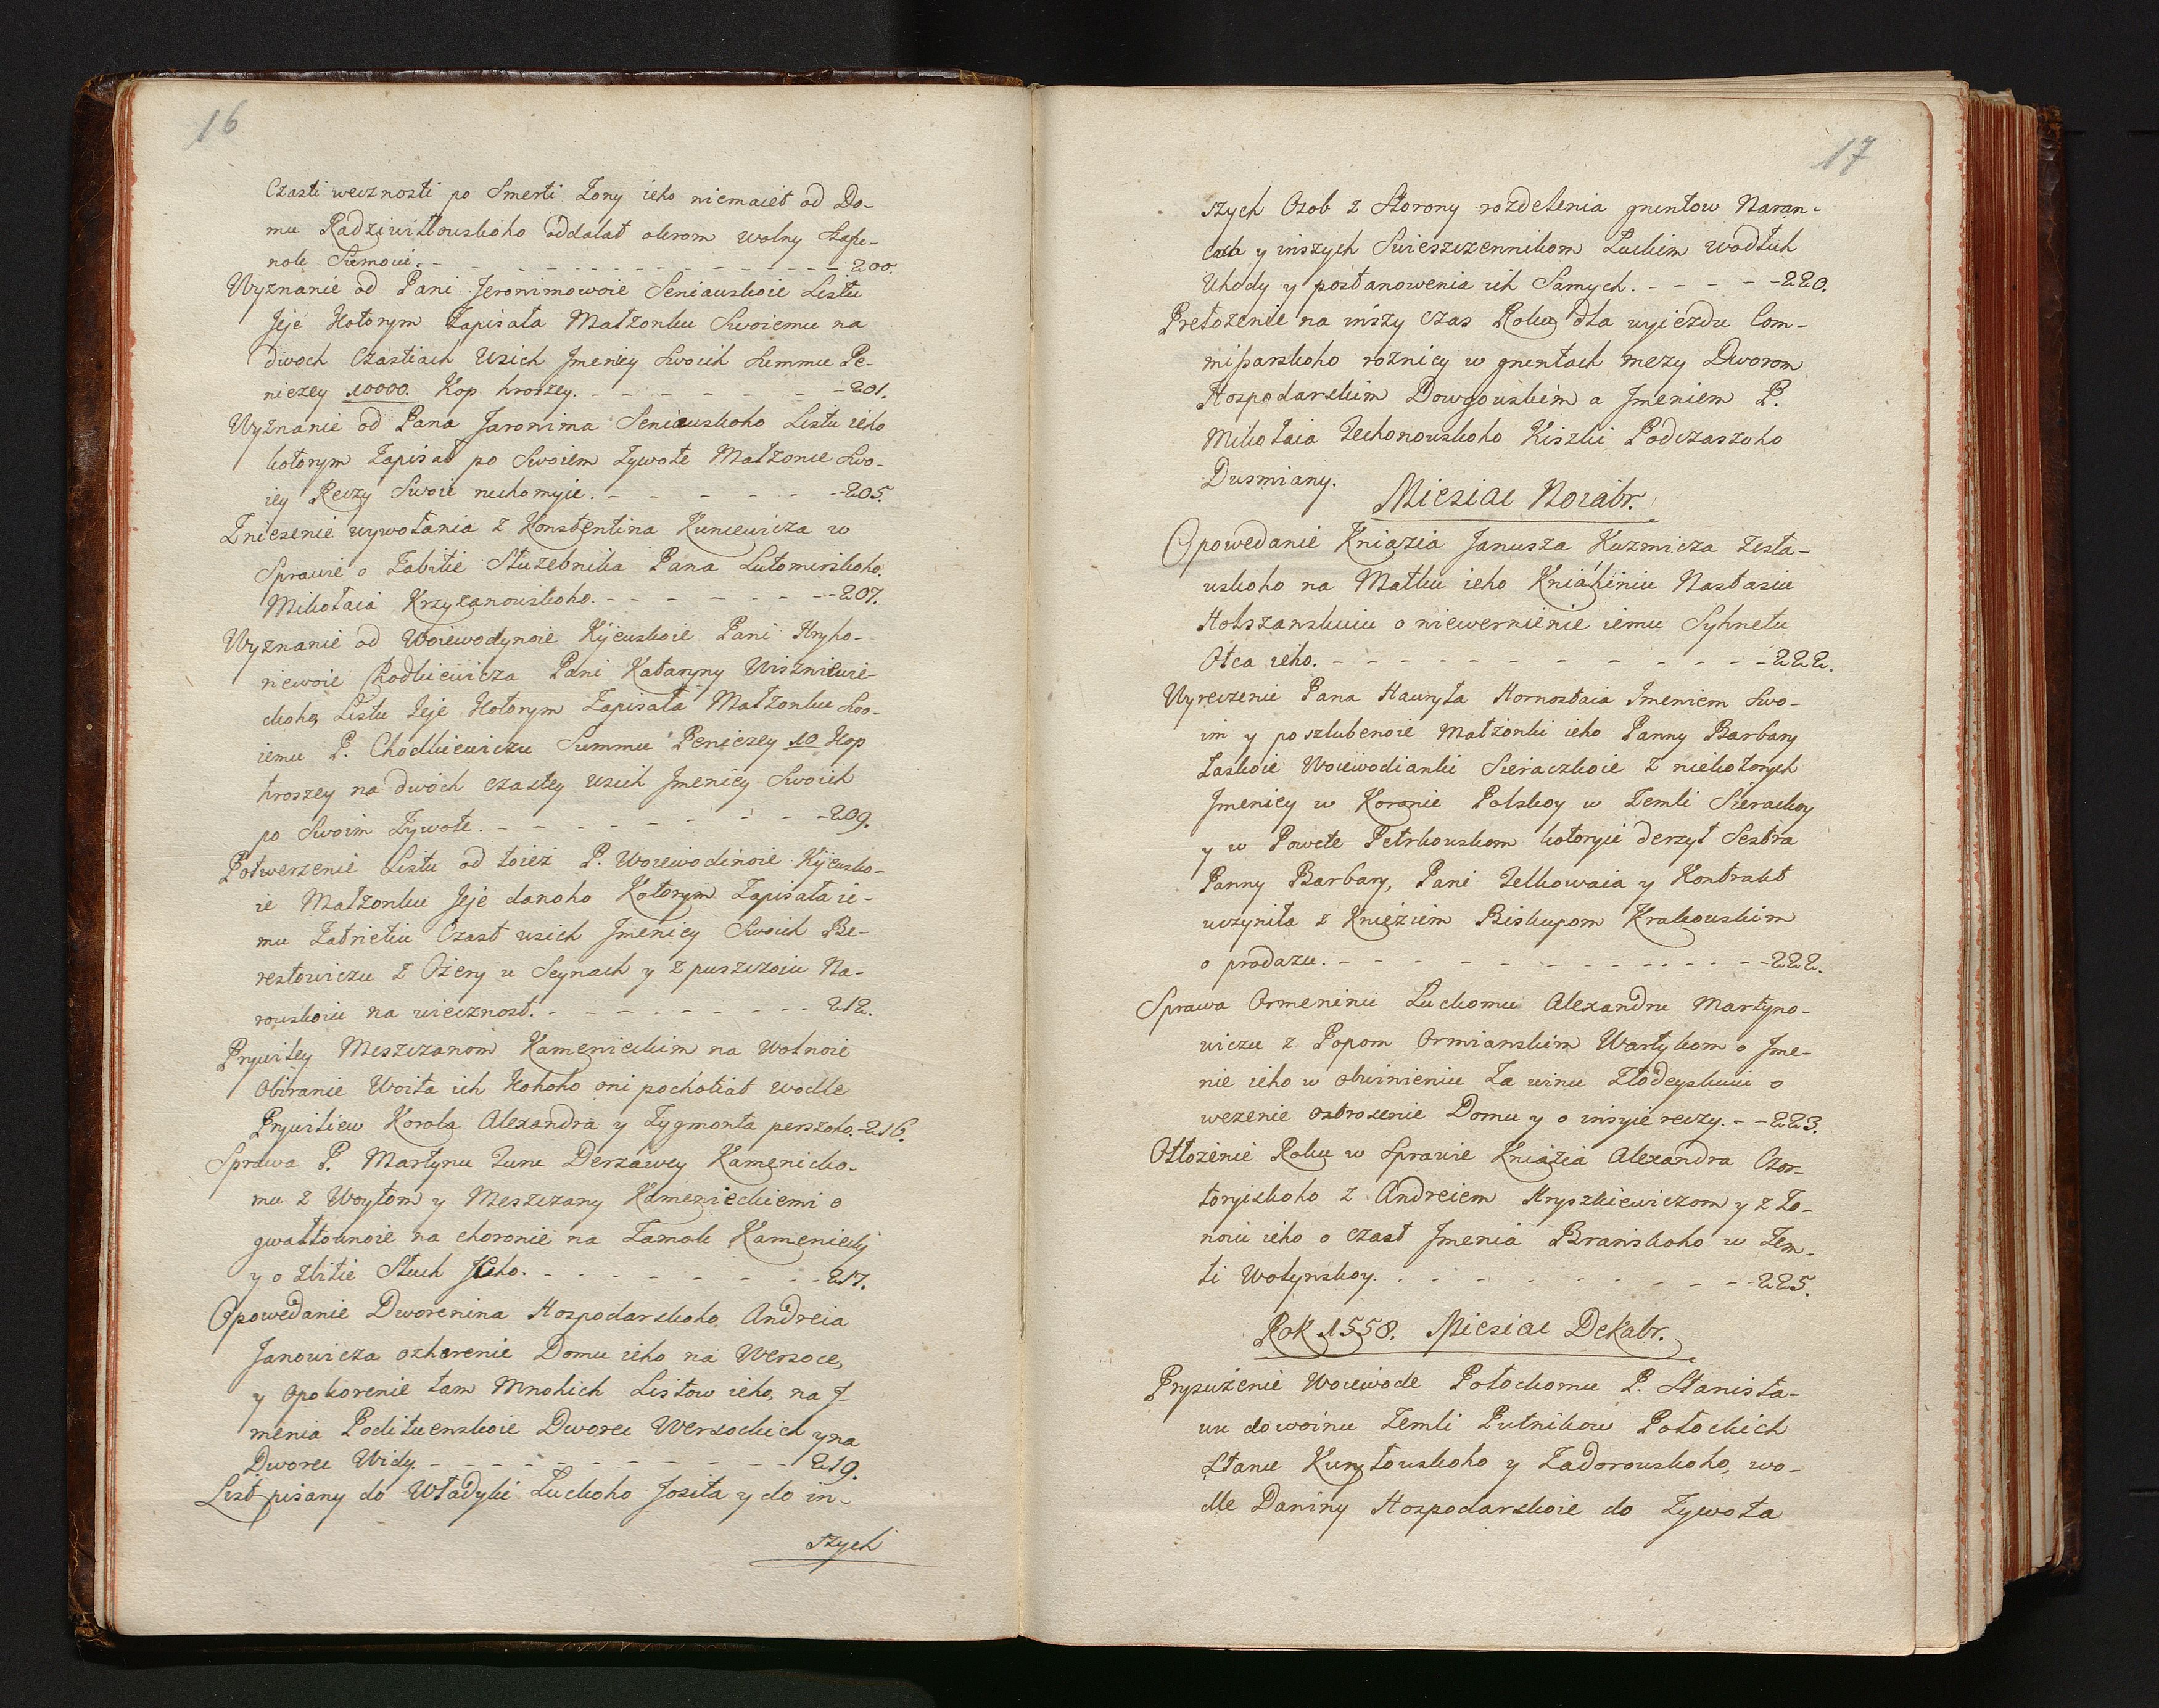 16
Czasti wecznosti po Smerti Zony ieho niemaiet od Do-
mu Radziwiłłouskoho oddalat okrom wolny Szape-
nok Siemowi. - - - 200.
Wyznanie od Pani Jeronimowoie Seniauskoie Listu
Jeje Kotorym Zapisała Małzonku Swoiemu na
dwoch Czastiach Usich Jmenicy Swoich Summu Pe-
niezey 10000. Kop hroszey. - - - 201.
Wyznanie od Pana Jaronima Seniauskoho Listu ieho
kotorym Zapisał po Swoiem Zywote Małzonce Swo-
iey Reczy Swoie ruchomyie. - - - 205.
Zniesenie wywołania z Konstentina Kuncewicza w
Sprawie o Zabitie Służebnika Pana Lutomirskoho
Mikołaia Krzyżanouskoho. - - - 207.
Wyznanie od Woiewodynoie Kijeuskoie Pani Hryho-
riewoie Chodkiewicza Pani Kataryny Wiszniewie-
ckoho, Listu Jeje Kotorym Zapisała Małżonku Swo-
iemu P. Chodkiewiczu Summu Peniezey 10 Kop
hroszey na dwoch czastey usich Jmenicy Swoich
po Swoim Zywote. - - - 209.
Potwerzenie Listu od toież P. Woiewodinoie Kijeusko-
ie Małzonku Jeje danoho Kotorym Zapisała ie-
mu Zatrietiu Czast usich Jmenicy Swoich Be-
restowiczu z Ozery u Seynach y z puszczoiu Na-
rouskoiu na wiecznost. - - - 212.
Prywiley Meszczanom Kamenieckim na Wolnoie
Obiranie Woita ich Kohoho oni pochotiat wodle
Prywiliew Korola Alexandra y Zygmonta perszoho. - 216.
Sprawa P. Martynu Zuru Derzawcy Kamenicko-
mu z Woytom y Meszczany Kamenieckiemi o
gwałtounoie na choronie na Zamok Kameniecky
y o zbitie Słuch Jeho. - - - 217.
Opowedanie Dworenina Hospodarskoho Andreia
Janowicza ozhorenie Domu ieho na Wersoce,
y opohorenie tam Mnohich Listow ieho, na J-
menia Podlituenskoie Dworcu Wersockich y na
Dworcu Widy. - - - 219.
List pisany do Władyki Luckoho Josifa y do in-
szych
17
szych Osob z Storony rozdelenia gruntow Naran-
y inszych Swieszczennikom Luckim wodłuh
Uhody y postanowenia ich Samych. - - - 220.
Prełożenie na inszy czas Roku dla wyiezdu Com-
mißarskoho roznicy w gruntach mezy Dworom
Hospodarskim Dowgouskim a Jmeniem P.
Mikołaia Techonouskoho Kiszki Podczaszoho
Dusmiany.
Miesiac Noiabr.
Opowedanie Kniazia Janusza Kuzmicza Zesła-
uskoho na Matku ieho Kniahiniu Nastasiu
Holszanskuiu o niewernienie iemu Syhnetu
Otca ieho. - - - 222.
Wyreczenie Pana Hauryła Hornostaia Jmeniem Swo-
im y poszlubenoie małżonki ieho Panny Barbary
Laskoie Woiewodianki Sieraczkoie z niekotorych
Jmenicy w Koronie Polskoy w Zemli Sierackoy
y w Powete Petrkouskom kotoryie derzyt Sestra
Panny Barbary, Pani Zelkowaia y Kontrakt
uczyniła z Knieziem Biskupom Krakouskim
o prodazu. - - - 222.
Sprawa Ormeninu Luckomu Alexandru Martyno-
wiczu z Popom Ormianskim Wartykom o Jme-
nie ieho w obwinieniu Za winu Złodeyskuiu o
wezenie ostrosenie Domu y o insyie reczy. - - 223.
Otłożenie Roku w Sprawie Kniazia Alexandra Czor-
toryiskoho z Andreiem Hryszkiewiczom y z Zo-
noiu ieho o czast Jmenia Branskoho w Zem-
li Wołynskoy. - - - 225.
Rok 1558. Miesiac Dekabr.
Prysużenie Woiewode Połockomu P. Stanisła-
wu dowoinu Zemli Putnikow Połockich
Stanu Kuryłouskoho y Zadorouskoho, wo-
dle Daniny Hospodarskoie do Zywota